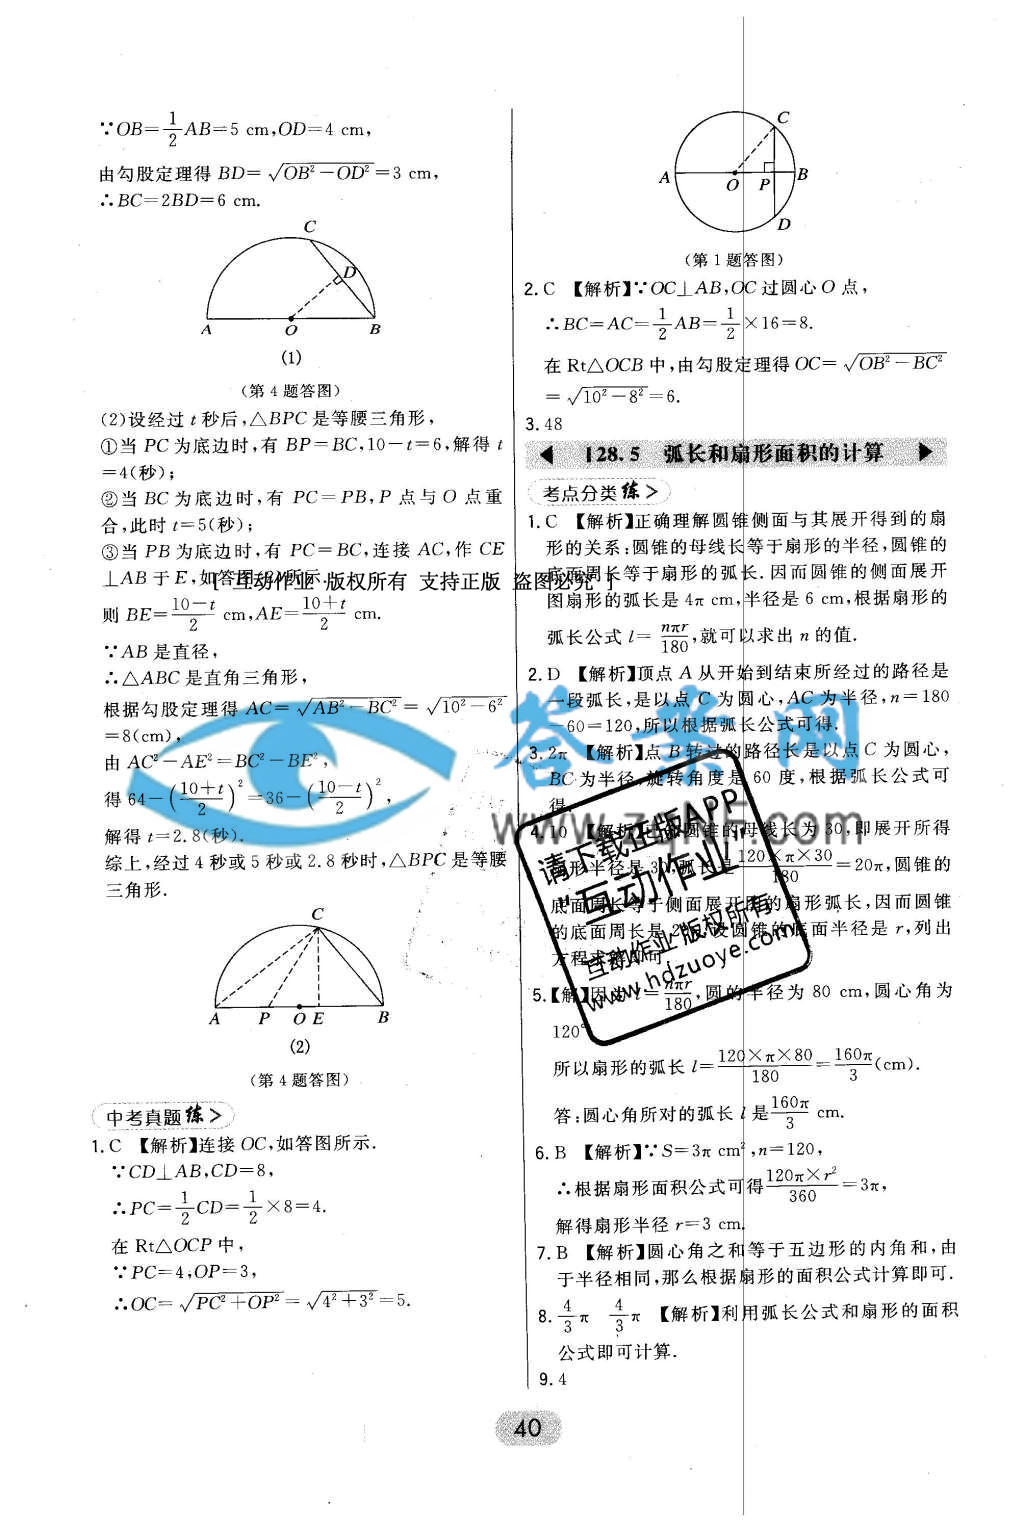 ∵OB=1/2 AB=5 cm,OD=4 cm,
由勾股定理得 BD=√(OB²-OD²)=3 cm,
∴BC=2BD=6 cm.
C
D
A O B
(1)
(第 4 题答图)
(2)设经过 t 秒后,△BPC 是等腰三角形,
①当 PC 为底边时,有 BP=BC,10-t=6,解得 t
=4(秒);
②当 BC 为底边时,有 PC=PB,P 点与 O 点重
合,此时 t=5(秒);
③当 PB 为底边时,有 PC=BC,连接 AC,作 CE
⊥AB 于 E,如答图
则 BE=(10-t)/2 cm,AE=(10+t)/2 cm.
∵AB 是直径,
∴△ABC 是直角三角形,
根据勾股定理得 AC=√(AB²-BC²)=√(10²-6²)
=8(cm),
由 AC²-AE²=BC²-BE²,
得 64-((10+t)/2)²=36-((10-t)/2)²,
解得 t=2.8(秒).
综上,经过 4 秒或 5 秒或 2.8 秒时,△BPC 是等腰
三角形.
C
A P O E B
(2)
(第 4 题答图)
中考真题 练>
1. C 【解析】连接 OC,如答图所示.
∵CD⊥AB,CD=8,
∴PC=1/2 CD=1/2×8=4.
在 Rt△OCP 中,
∵PC=4,OP=3,
∴OC=√(PC²+OP²)=√(4²+3²)=5.
C
A O P B
D
(第 1 题答图)
2. C 【解析】∵OC⊥AB,OC 过圆心 O 点,
∴BC=AC=1/2 AB=1/2×16=8.
在 Rt△OCB 中,由勾股定理得 OC=√(OB²-BC²)
=√(10²-8²)=6.
3. 48
28.5 弧长和扇形面积的计算
考点分类 练>
1. C 【解析】正确理解圆锥侧面与其展开得到的扇
形的关系:圆锥的母线长等于扇形的半径,圆锥的
底面周长等于扇形的弧长.因而圆锥的侧面展开
图扇形的弧长是 4π cm,半径是 6 cm,根据扇形的
弧长公式 l=nπr/180,就可以求出 n 的值.
2. D 【解析】顶点 A 从开始到结束所经过的路径是
一段弧长,是以点 C 为圆心,AC 为半径,n=180
-60=120,所以根据弧长公式可得.
3. 2π 【解析】点 B 转过的路径长是以点 C 为圆心,
BC 为半径,旋转角度是 60 度,根据弧长公式可
得.
4. 10 【解析】圆锥的母线长为 30,即展开所得
扇形半径是 30,弧长是 120×π×30/180=20π,圆锥的
底面周长等于侧面展开图的扇形弧长,因而圆锥
的底面周长是 20π,设圆锥的底面半径是 r,列出
方程求解即可.
5.【解】因为 l=nπr/180,圆的半径为 80 cm,圆心角为
120°
所以扇形的弧长 l=120×π×80/180=160π/3(cm).
答:圆心角所对的弧长 l 是 160π/3 cm.
6. B 【解析】∵S=3π cm²,n=120,
∴根据扇形面积公式可得 120π×r²/360=3π,
解得扇形半径 r=3 cm.
7. B 【解析】圆心角之和等于五边形的内角和,由
于半径相同,那么根据扇形的面积公式计算即可.
8. 4/3π 4/3π 【解析】利用弧长公式和扇形的面积
公式即可计算.
9. 4
40
互动作业·版权所有 支持正版 盗图必究
答案网
请下载正版APP
“互动作业”
互动作业·版权所有
www.hdzuoye.com